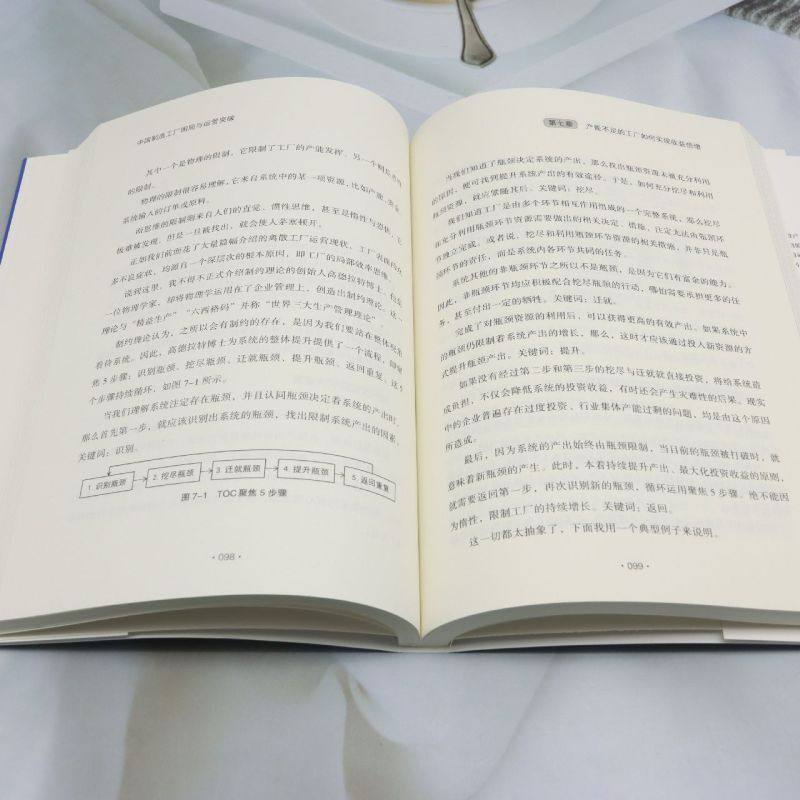 中国制造工厂困局与运营突破
其中一个是物理的限制，它限制了工厂的产能发挥。另一个则是思维
的限制。
物理的限制很容易理解，它来自系统中的某一项资源，比如产能、资金、
系统输入的订单或原料。
而思维的限制则来自人们的直觉、惯性思维，甚至是悟性与恐惧，它
极难被发现。但是一旦被找出，就会使人茅塞顿开。
正如我们前面花了大量篇幅介绍的离散工厂运营现状，工厂表面
多不良症状，均源自一个深层次的根本原因，即工厂的局部效率思维。
说到这里，我不得不正式介绍制约理论的创始人高德拉特博士，他是
一位物理学家，却将物理学运用在了企业管理上，创造出制约理论。这一
理论与“精益生产”“六西格码”并称“世界三大生产管理理论”。
制约理论认为，之所以会有制约的存在，是因为我们要站在整体视角
看待系统。因此，高德拉特博士为系统的整体提升提供了一个流程，即聚
焦5步骤：识别瓶颈、挖尽瓶颈、迁就瓶颈、提升瓶颈、返回重复。这5
个步骤持续循环，如图7-1所示。
当我们理解系统注定存在瓶颈，并且认同瓶颈决定着系统的产出时，
那么首先第一步，就应该识别出系统的瓶颈，找出限制系统产出的因素。
关键词：识别。
1. 识别瓶颈 2. 挖尽瓶颈 3. 迁就瓶颈 4. 提升瓶颈 5. 返回重复
图7-1 TOC聚焦5步骤
·098·
第七章 产能不足的工厂如何实现收益倍增
当我们知道了瓶颈决定系统的产出，那么找出瓶颈资源未被充分利用
的原因，便可找到提升系统产出的有效途径。于是，如何充分挖尽和利用
瓶颈资源，就应紧随其后。关键词：挖尽。
我们知道工厂是由多个环节相互作用组成的一个完整系统，那么挖尽
和充分利用瓶颈环节资源需要做出的相关决定、措施，注定无法由瓶颈环
节独立完成。或者说，挖尽和利用瓶颈环节资源的相关措施，并非只是瓶
颈环节的责任，而是系统内各环节共同的任务。
系统其他的非瓶颈环节之所以不是瓶颈，是因为它们有富余的能力。
因此，非瓶颈环节均应积极配合挖尽瓶颈的行动，哪怕需要承担更多的任
务，甚至付出一定的牺牲。关键词：迁就。
完成了对瓶颈资源的利用后，可以获得更高的有效产出。如果系统中
的瓶颈仍限制着系统产出的增长，那么，这时才应该通过投入新资源的方
式提升瓶颈产出。关键词：提升。
如果没有经过第二步和第三步的挖尽与迁就就直接投资，将给系统造
成负担，不仅会降低系统的投资收益，有时还会产生灾难性的后果。现实
中的企业普遍存在过度投资、行业集体产能过剩的问题，均是由这个原因
所造成。
最后，因为系统的产出始终由瓶颈限制，当目前的瓶颈被打破时，就
意味着新瓶颈的产生。此时，本着持续提升产出、最大化投资收益的原则，
就需要返回第一步，再次识别新的瓶颈，循环运用聚焦5步骤。绝不能因
为惰性，限制工厂的持续增长。关键词：返回。
这一切都太抽象了，下面我用一个典型例子来说明。
·099·